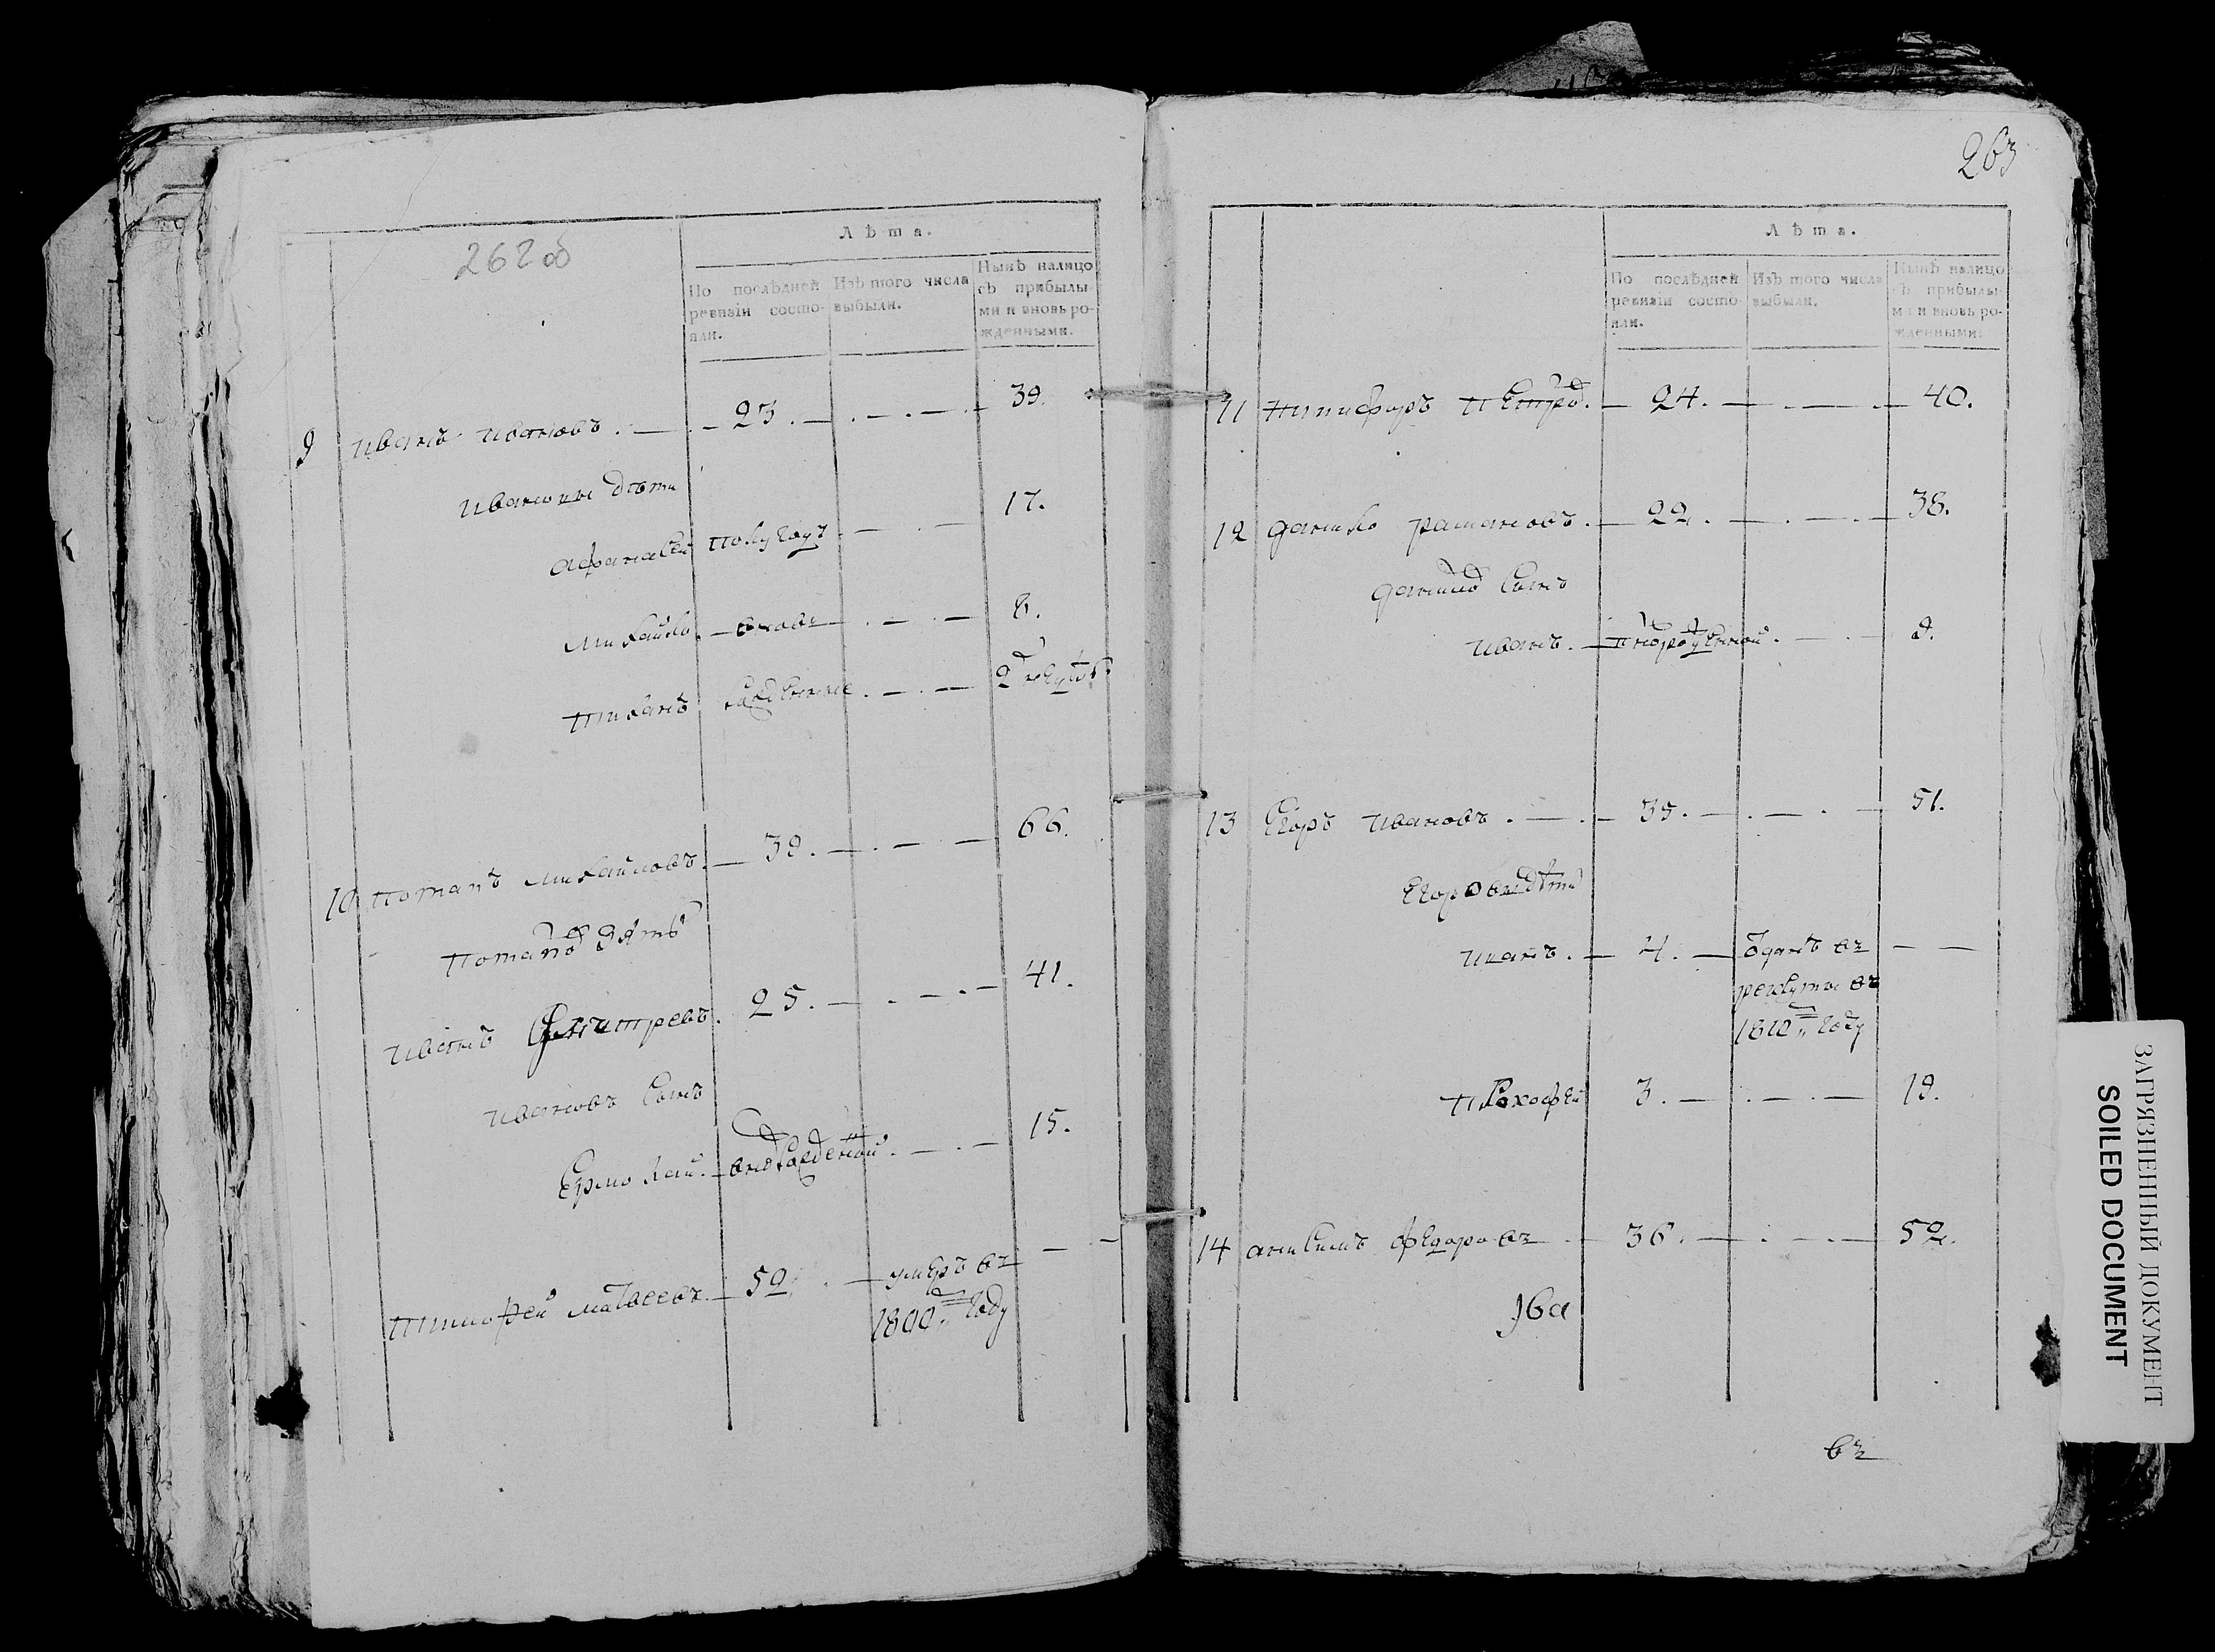 262 об
Лѣта.
По послѣдней ревизіи состояли.
Изъ того числа выбыли.
Нынѣ налицо съ прибылыми и вновь рожденными.
9 иванъ ивановъ . — 23. — . — . — 39.
ивановы дѣти
афанасей полугоду . — . — 17.
михайло . — вновь — . — . — 8.
рожденные . — . — 2
10 потапъ михайловъ. — 39. — . — . — 66.
потаповъ зять
иванъ дмитревъ. 25. — . — . — 41.
ивановъ сынъ
ермолай. — вновьрожденой. — . — 15.
тимофей матвеевъ. — 52. — умеръ въ — —
1800м году
263
Лѣта.
По послѣдней ревизіи состояли.
Изъ того числа выбыли.
Нынѣ налицо съ прибылыми и вновь рожденными.
11 петров. — 24. — . — . — 40.
12 данило рамановъ. — 22. — . — . — 38.
данилов сынъ
иванъ. — . — . — 9.
13 Егоръ ивановъ . — . — 35. — . — . — 51.
Егоровыдѣти
иванъ. — 4. — одданъ въ — —
рекруты въ
1812м году
прохофей 3. — . — . — 19.
14 анисимъ федоровъ — . — 36. — . — . — 52.
въ
ЗАГРЯЗНЕННЫЙ ДОКУМЕНТ
SOILED DOCUMENT